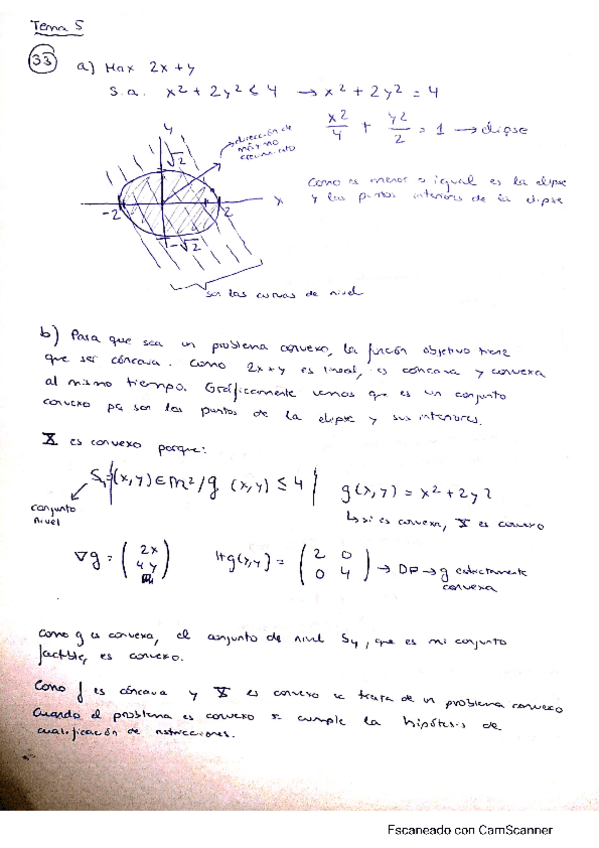 Tema 5
33 a) Max 2x+y
s.a. x² + 2y² ≤ 4 → x² + 2y² = 4
x²/4 + y²/2 = 1 → elipse
y
dirección de
máximo
crecimiento
√2
Como es menor o igual es la elipse
y los puntos interiores de la elipse
-2 2 x
-√2
son las curvas de nivel
b) Para que sea un problema convexo, la función objetivo tiene
que ser cóncava. Como 2x+y es lineal, es cóncava y convexa
al mismo tiempo. Gráficamente vemos que es un conjunto
convexo pq son los puntos de la elipse y sus interiores.
X es convexo porque:
S₄={(x,y)∈R²/g (x,y) ≤ 4} g(x,y) = x² + 2y²
conjunto
nivel
↳ si es convexa, X es convexo
∇g = (2x 4y) Hg(x,y) = (2 0 0 4) → DP → g estrictamente
convexa
Como g es convexa, el conjunto de nivel S₄, que es mi conjunto
factible, es convexo.
Como f es cóncava y X es convexo se trata de un problema convexo
Cuando el problema es convexo se cumple la hipótesis de
cualificación de restricciones.
Escaneado con CamScanner